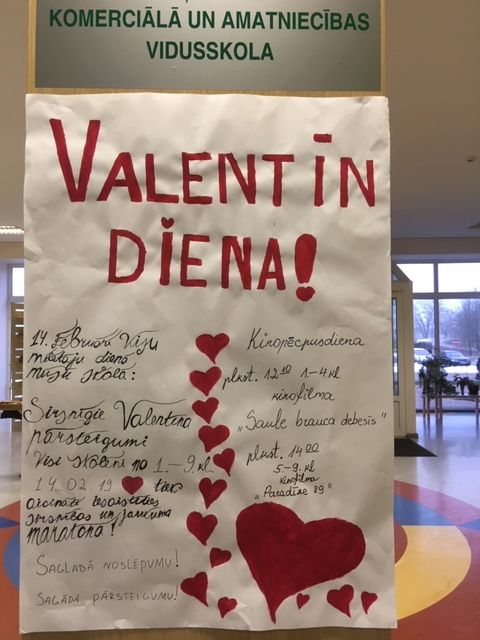 KOMERCIĀLĀ UN AMATNIECĪBAS
VIDUSSKOLA
VALENTĪN
DIENA!
14. Februāri Visu
mīlētāju dienā
mūsu skolā:
Sirsnīgie Valentīna
pārsteigumi
Visi skolēni no 1.-9.kl.
14.02.19 tiek
aicināti iesaistīties
sirsnības un jaukuma
maratonā!
SAGLABĀ NOSLĒPUMU!
SAGĀDĀ PĀRSTEIGUMU!
Kinopēcpusdiena
plkst. 12 10 1-4 kl
kinofilma
„Saule brauca debesīs"
plkst. 14 00
5-9. kl
kinofilma
„Paradīze 89"